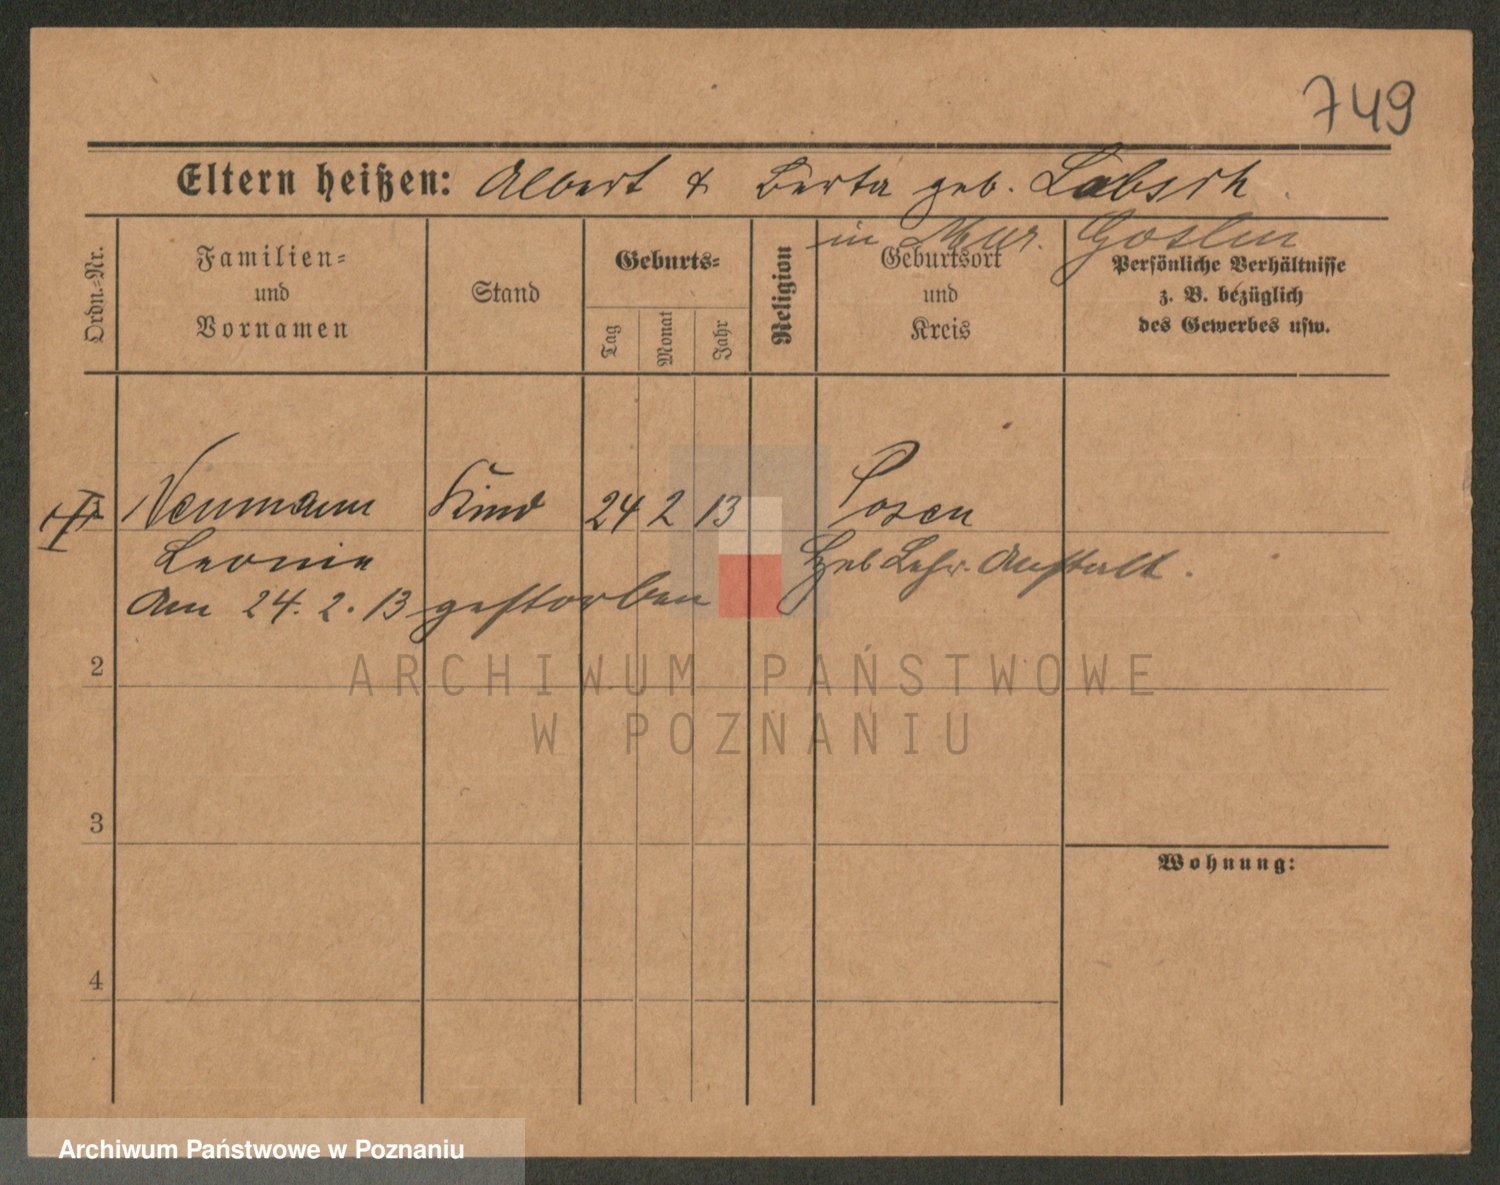 749
Eltern heißen: Albert & Berta geb. Labsch
in Mur. Goslin
Ordn.-Nr.
Familien-
und
Vornamen
Stand
Geburts-
Tag
Monat
Jahr
Religion
Geburtsort
und
Kreis
Persönliche Verhältnisse
z. B. bezüglich
des Gewerbes usw.
Neumann Kind 24 2 13 Posen
Leonie Heb Lehr. Anstalt.
Am 24. 2. 13 gestorben
2
ARCHIWUM PAŃSTWOWE
W POZNANIU
3
Wohnung:
4
Archiwum Państwowe w Poznaniu